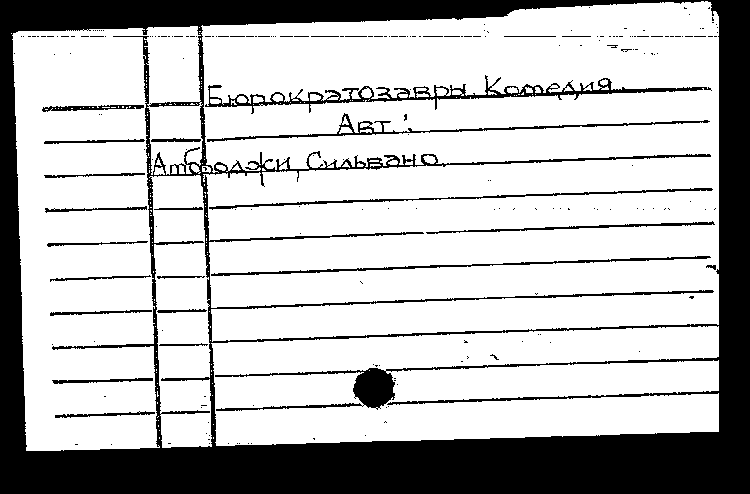 Бюрократозавры. Комедия.
Авт.:
Амброджи, Сильвано.